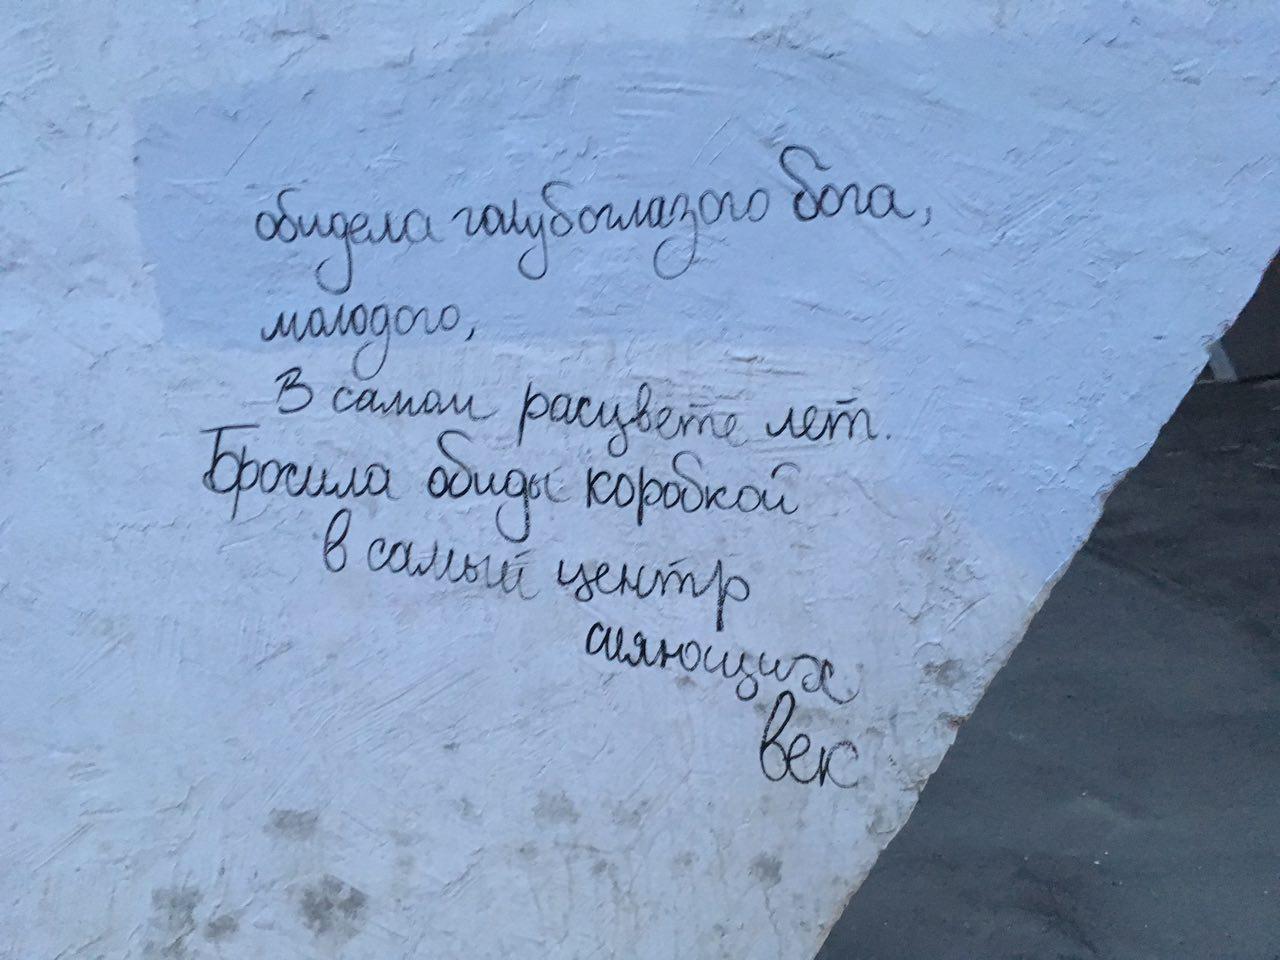 обидела голубоглазого бога,
молодого,
В самом расцвете лет.
Бросила обиды коробкой
в самый центр
сияющих
век